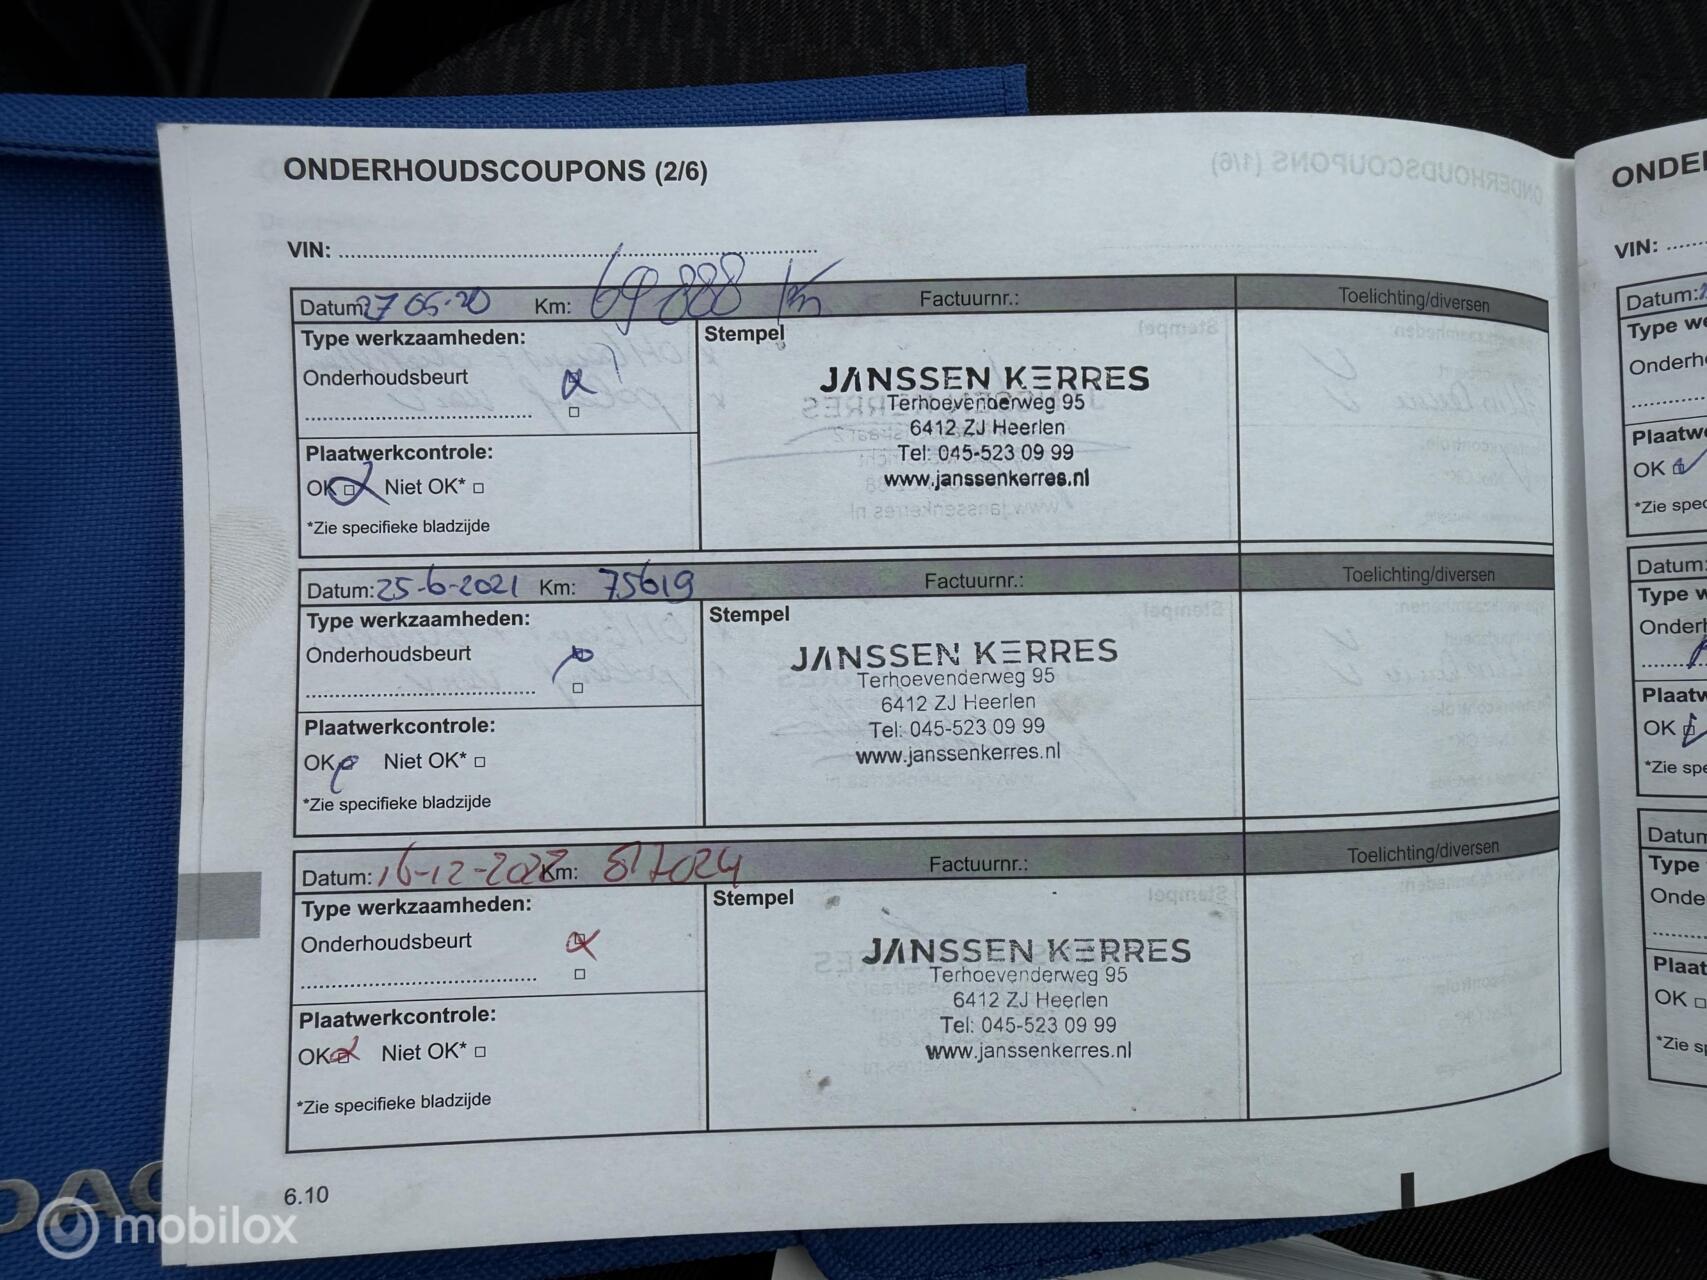 ONDERHOUDSCOUPONS (2/6)
VIN:
Datum: 27 05-20 Km: 69888 km Factuurnr.: Toelichting/diversen
Type werkzaamheden: Stempel
Onderhoudsbeurt
JANSSEN KERRES
Terhoevenderweg 95
6412 ZJ Heerlen
Tel: 045-523 09 99
www.janssenkerres.nl
Plaatwerkcontrole:
OK Niet OK*
*Zie specifieke bladzijde
Datum: 25-6-2021 Km: 75619 Factuurnr.: Toelichting/diversen
Type werkzaamheden: Stempel
Onderhoudsbeurt
JANSSEN KERRES
Terhoevenderweg 95
6412 ZJ Heerlen
Tel: 045-523 09 99
www.janssenkerres.nl
Plaatwerkcontrole:
OK Niet OK*
*Zie specifieke bladzijde
Datum: 16-12-2022 Km: Factuurnr.: Toelichting/diversen
Type werkzaamheden: Stempel
Onderhoudsbeurt
JANSSEN KERRES
Terhoevenderweg 95
6412 ZJ Heerlen
Tel: 045-523 09 99
www.janssenkerres.nl
Plaatwerkcontrole:
OK Niet OK*
*Zie specifieke bladzijde
6.10
VIN:
Datum:
Type
OK
Datum:
Type
OK
Type
OK
DAC
mobilox